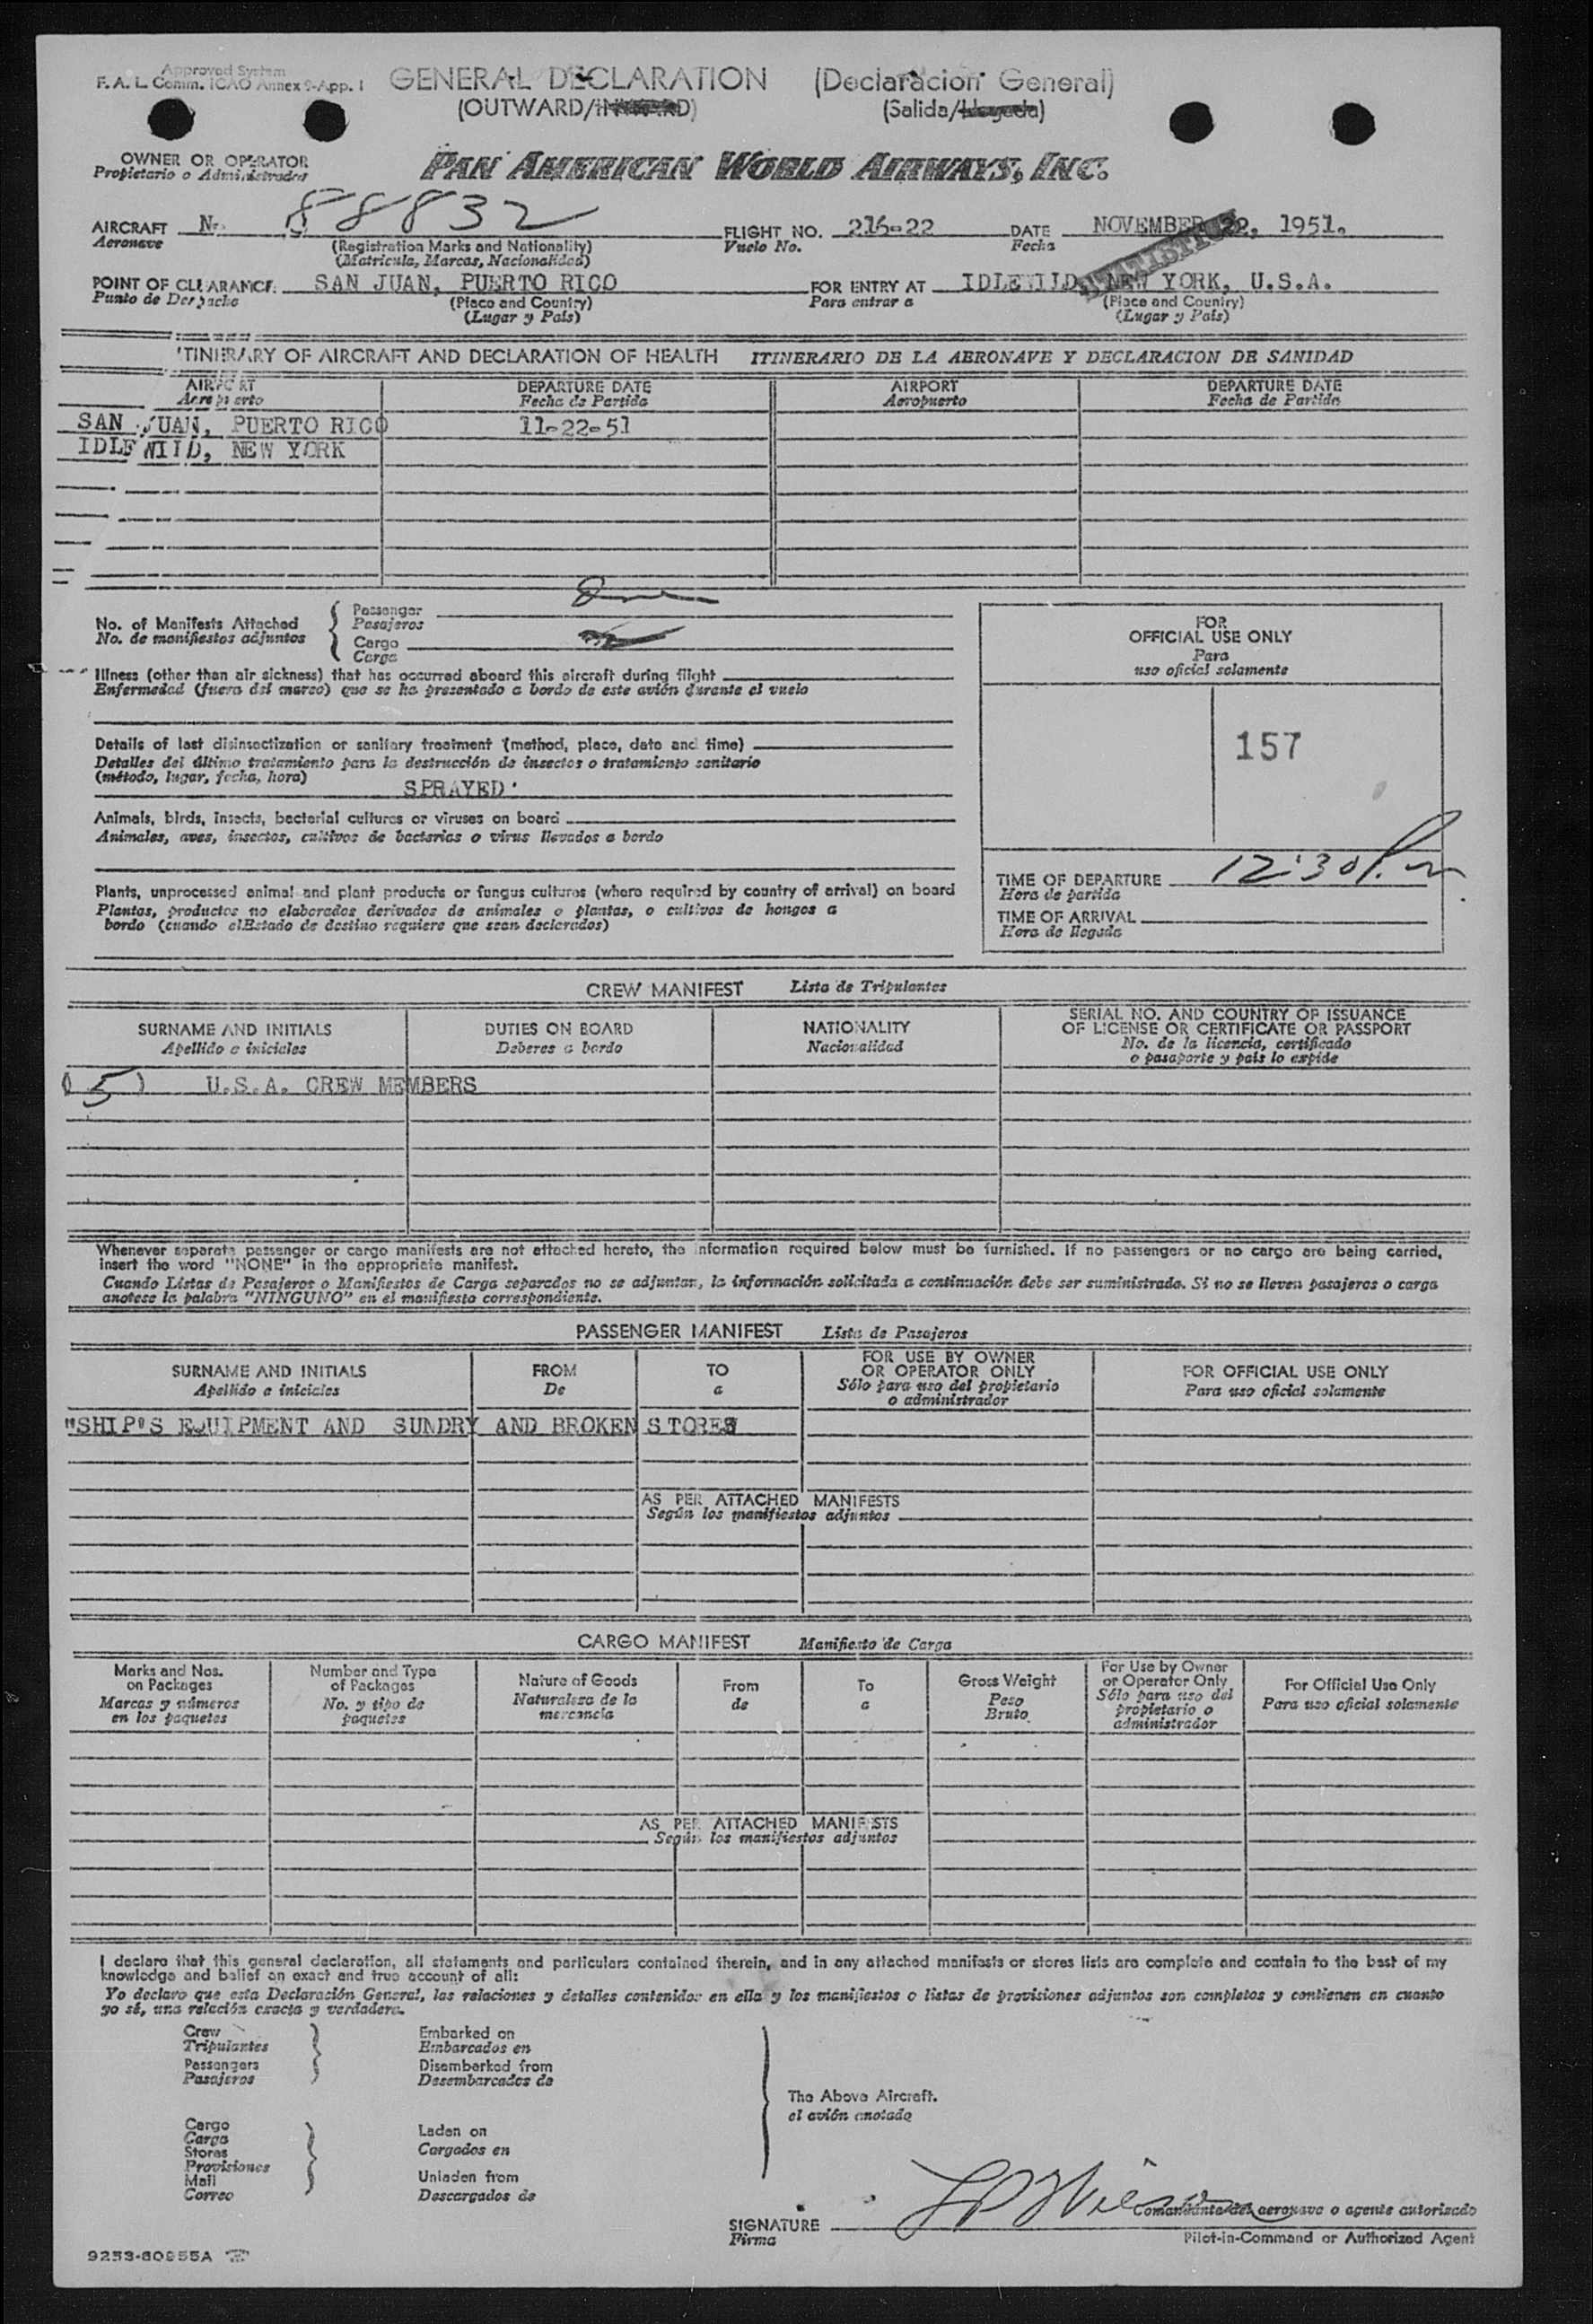 Approved System
F. A. L. Comm. ICAO Annex 9-App. 1
GENERAL DECLARATION (Declaracion General)
(OUTWARD/INWARD) (Salida/Llegada)
OWNER OR OPERATOR
Propietario o Administrador
PAN AMERICAN WORLD AIRWAYS, INC.
AIRCRAFT N- 88832 FLIGHT NO. 216-22 DATE NOVEMBER 22, 1951.
Aeronave (Registration Marks and Nationality) Vuelo No. Fecha
(Matricula, Marcas, Nacionalidad)
STATISTICS
POINT OF CLEARANCE SAN JUAN, PUERTO RICO FOR ENTRY AT IDLEWILD, NEW YORK, U.S.A.
Punto de Despacho (Place and Country) Para entrar a (Place and Country)
(Lugar y País) (Lugar y País)
ITINERARY OF AIRCRAFT AND DECLARATION OF HEALTH ITINERARIO DE LA AERONAVE Y DECLARACION DE SANIDAD
AIRPORT DEPARTURE DATE AIRPORT DEPARTURE DATE
Aeropuerto Fecha de Partida Aeropuerto Fecha de Partida
SAN JUAN, PUERTO RICO 11-22-51
IDLEWILD, NEW YORK
No. of Manifests Attached
No. de manifiestos adjuntos
Passenger
Pasajeros
Cargo
Carga
Illness (other than air sickness) that has occurred aboard this aircraft during flight
Enfermedad (fuera del mareo) que se ha presentado a bordo de este avión durante el vuelo
Details of last disinsectization or sanitary treatment (method, place, date and time)
Detalles del último tratamiento para la destrucción de insectos o tratamiento sanitario
(método, lugar, fecha, hora) SPRAYED
Animals, birds, insects, bacterial cultures or viruses on board
Animales, aves, insectos, cultivos de bacterias o virus llevados a bordo
Plants, unprocessed animal and plant products or fungus cultures (where required by country of arrival) on board
Plantas, productos no elaborados derivados de animales o plantas, o cultivos de hongos a
bordo (cuando el Estado de destino requiere que sean declarados)
FOR
OFFICIAL USE ONLY
Para
uso oficial solamente
157
TIME OF DEPARTURE 12:30 P.m
Hora de partida
TIME OF ARRIVAL
Hora de llegada
CREW MANIFEST Lista de Tripulantes
SURNAME AND INITIALS DUTIES ON BOARD NATIONALITY SERIAL NO. AND COUNTRY OF ISSUANCE
OF LICENSE OR CERTIFICATE OR PASSPORT
Apellido e iniciales Deberes a bordo Nacionalidad No. de la licencia, certificado
o pasaporte y país lo expide
(5) U.S.A. CREW MEMBERS
Whenever separate passenger or cargo manifests are not attached hereto, the information required below must be furnished. If no passengers or no cargo are being carried,
insert the word "NONE" in the appropriate manifest.
Cuando Listas de Pasajeros o Manifiestos de Carga separados no se adjuntan, la información solicitada a continuación debe ser suministrada. Si no se lleven pasajeros o carga
anotese la palabra "NINGUNO" en el manifiesto correspondiente.
PASSENGER MANIFEST Lista de Pasajeros
SURNAME AND INITIALS FROM TO FOR USE BY OWNER
OR OPERATOR ONLY FOR OFFICIAL USE ONLY
Apellido e iniciales De a Sólo para uso del propietario
o administrador Para uso oficial solamente
"SHIP'S EQUIPMENT AND SUNDRY AND BROKEN STORES
AS PER ATTACHED MANIFESTS
Según los manifiestos adjuntos
CARGO MANIFEST Manifiesto de Carga
Marks and Nos.
on Packages
Marcas y números
en los paquetes
Number and Type
of Packages
No. y tipo de
paquetes
Nature of Goods
Naturaleza de la
mercancía
From
de
To
a
Gross Weight
Peso
Bruto
For Use by Owner
or Operator Only
Sólo para uso del
propietario o
administrador
For Official Use Only
Para uso oficial solamente
AS PER ATTACHED MANIFESTS
Según los manifiestos adjuntos
I declare that this general declaration, all statements and particulars contained therein, and in any attached manifests or stores lists are complete and contain to the best of my
knowledge and belief an exact and true account of all:
Yo declaro que esta Declaración General, las relaciones y detalles contenidos en ella y los manifiestos o listas de provisiones adjuntos son completos y contienen en cuanto
yo sé, una relación exacta y verdadera.
Crew
Tripulantes
Passengers
Pasajeros
Embarked on
Embarcados en
Disembarked from
Desembarcados de
The Above Aircraft.
el avión anotado
Cargo
Carga
Stores
Provisiones
Mail
Correo
Laden on
Cargados en
Unladen from
Descargados de
SIGNATURE
Firma
Comandante del aeronave o agente autorizado
Pilot-in-Command or Authorized Agent
9253-60955A